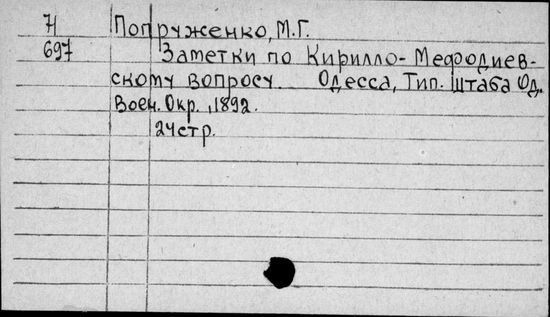 Н Попруженко, М.Г.
697 Заметки по Кирилло-Мефодиев-
скому вопросу. Одесса, Тип. Штаба Од.
Воен. Окр., 1892.
24 стр.